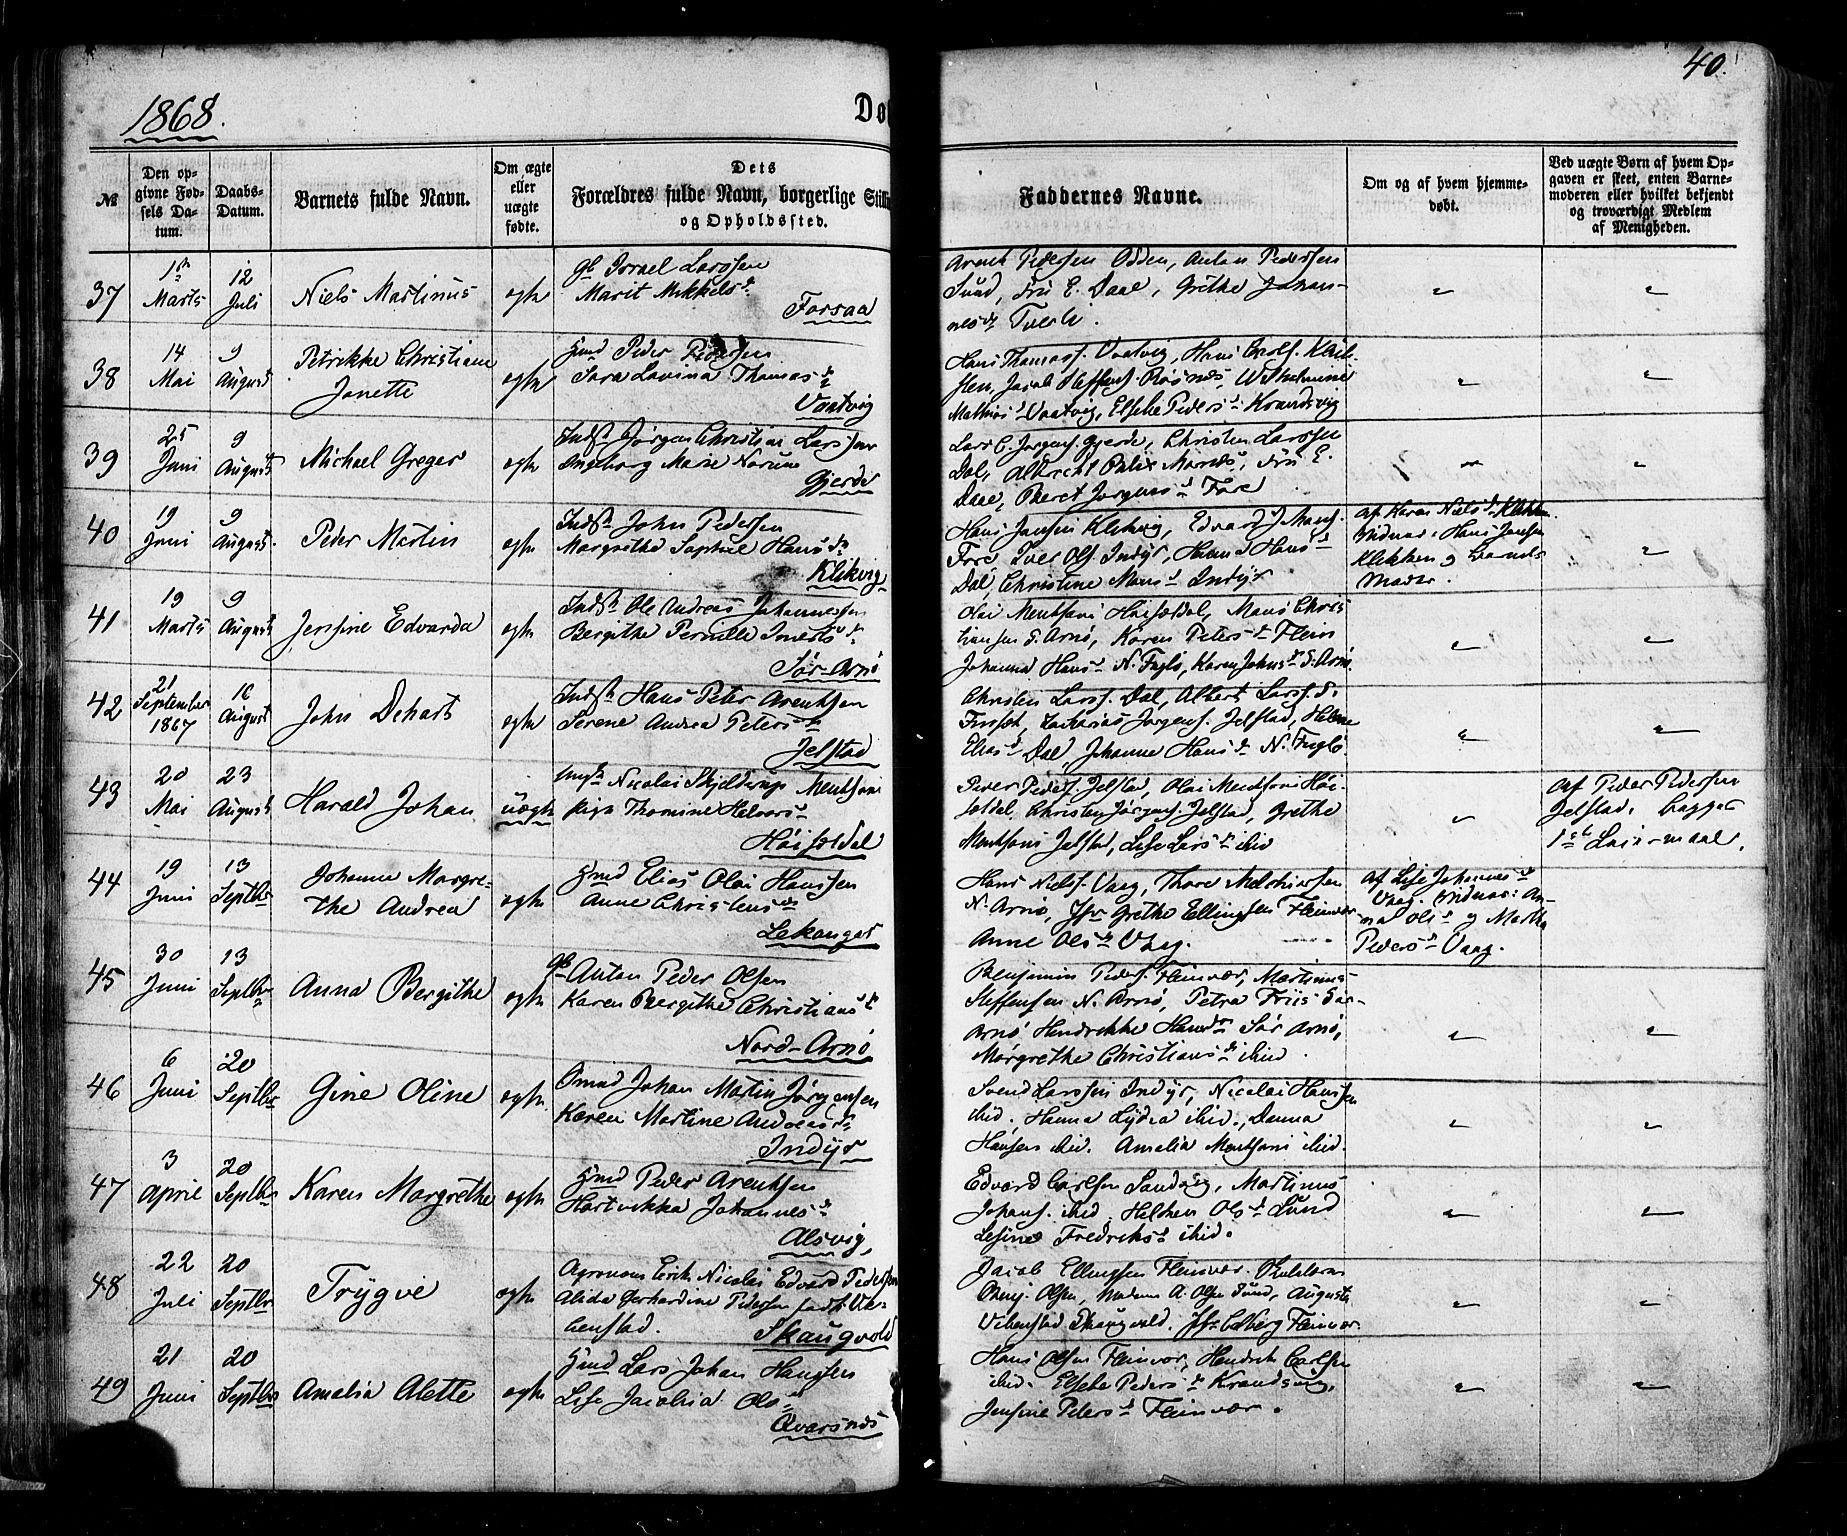 40.
1868.
Dø
№
Den op-
givne Fød-
sels Da-
tum.
Daabs-
Datum.
Barnets fulde Navn.
Om ægte
eller
uægte
fødte.
Dets
Forældres fulde Navn, borgerlige Still
og Opholdssted.
Faddernes Navne.
Om og af hvem hjemme-
døbt.
Ved uægte Børn af hvem Op-
gaven er skeet, enten Barne-
moderen eller hvilket bekjendt
og troværdigt Medlem
af Menigheden.
37
1ste
Marts
12
Juli
Niels Martinus
egte
Israel Larssen
Marit Mikkelsd.
Forsaa
Arent Pedersen Odden, Anton Pederssen
Sund, Fru E. Daae, Grethe Johan-
nesd.
38
14
Mai
9
August
Petrikke Christiane
Janette
egte
Gmd Peder Pedersen
Sara Lovina Thomasd.
Vaatvig
Hans Thomass. Vaatvig, Hans
Jacob Steffens. Røsnes, Wilhelmine
Mathiasd. Vaatvig, Elsebe Pedersd. Krandsvig
39
25
Juni
9
August
Michael Greger
egte
Indst. Jørgen Christian Larssen
Ingeborg Marie
Gjerde
Lars C. Jørgens. Gjerde, Christen Larssen
Dal, Albrecht Marnes, Fru E.
Daae, Beret Jørgensd. Fore
40
19
Juni
9
August
Peder Martin
egte
Indst. John Pedersen
Margrethe Sophie Hansd.
Klikvig
Hans Jansen Klikvig, Edvard J.
Fore, Iver Ols. Indyr, Hanna Hansd.
Dal, Christine Mansd. Indyr
af Karen Nielsd.
Vidner: Hans Jansen
Klikken og Barnets
Moder.
41
19
Marts
9
August
Jensine Edvarda
egte
Indst. Ole Andreas Johannessen
Bergithe Pernille
Sør-Arnø
Olai Mentsoni Høisædal, Mans Chris
tiansen S. Arnø, Karen Petersd. Flein
Johanna Hansd. N. Fuglø, Karen Johnsd. S. Arnø
42
21
September
1867
16
August
John Dehart
egte
Indst. Hans Peter Arentsen
Serene Andrea Petersd.
Jelstad
Christen Larss. Dal, Albert Larss. S.
Finset, Zakarias Jørgens. Jelstad, Helene
Eliasd. Dal, Johanne Hansd. N. Fuglø
43
20
Mai
23
August
Harald Johan
uægte
Ungk. Nicolai Skjelderup Mentsoni
Pige Thomine
Høisædal
Peder Peders. Jelstad, Olai Mentsoni Høi-
sædal, Christen Jørgens. Jelstad, Grethe
Mentsoni Jelstad, Lise Larsd. ibid
af Peder Pedersen
Jelstad. Begges
1ste Leiermaal.
44
19
Juni
13
Septbr
Johanne Margre-
the Andrea
egte
Gmd Elias Olai Hanssen
Anne Christensd.
Lekanger
Hans Niels. Vaag, Thore Melchiorsen
N. Arnø, Jfr Grethe Ellingsen Fleinvær
Anne Olsd. Vaag.
af Lise Johannesd.
Vaag. Vidner: An-
na Olsd. og Martha
Pedersd. Vaag.
45
30
Juni
13
Septbr
Anna Bergithe
egte
Anton Peder Olsen
Karen Bergithe Christiansd.
Nord-Arnø
Benjamin Peders. Fleinvær, Martinus
Steffensen N. Arnø, Petra Friis Sør-
Arnø Hendrikke Hansd. Sør Arnø,
Margrethe Christiansd. ibid.
46
6
Juni
20
Septbr
Gine Oline
egte
Gmd Johan Martin Jørgensen
Karen Martine Andreasd.
Indyr
Svend Larssen Indyr, Nicolai Hanssen
ibid. Hanna Lydia ibid., Danna
Hansen ibid. Amalia Mentsoni ibid.
47
3
April
20
Septbr
Karen Margrethe
egte
Gmd Peder Arentsen
Hartvikka Johannesd.
Alsvig
Edvard Carlsen Sandvig, Martinus
Johans. ibid. Olsd. Sund
Lesine Fredriksd. ibid.
48
22
Juli
20
Septbr
Trygve
egte
Agronom Erik Nicolai Edvard Pedersen
Alida Gerhardine Pedersen født Vi-
benstad.
Skaugvold
Jacob Ellingsen Fleinvær.
Benj. Olsen, Madam A. Olsen Sund, Augusta
Vibenstad Skaugvold. Jfr Edberg Fleinvær.
49
21
Juni
20
Septbr
Amalia Alette
egte
Gmd Lars Johan Hanssen
Lise Jacobia Olsd.
Qvarsnes
Hans Olsen Fleinvær, Hendrik Carlsen
ibid. Elsebe Pedersd. Krandsvig,
Jensine Petersd. Fleinvær.